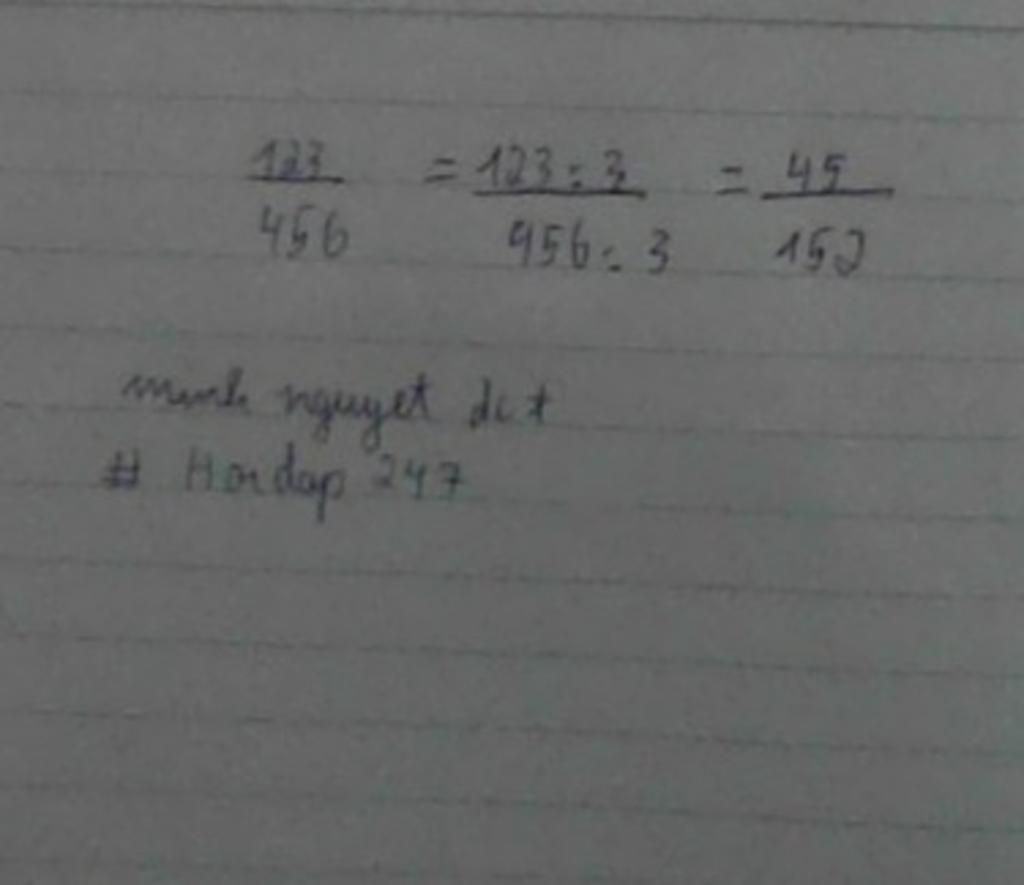 123/456 = 123:3/456:3 = 45/152
minh nguyet dct
# Hoidap 247